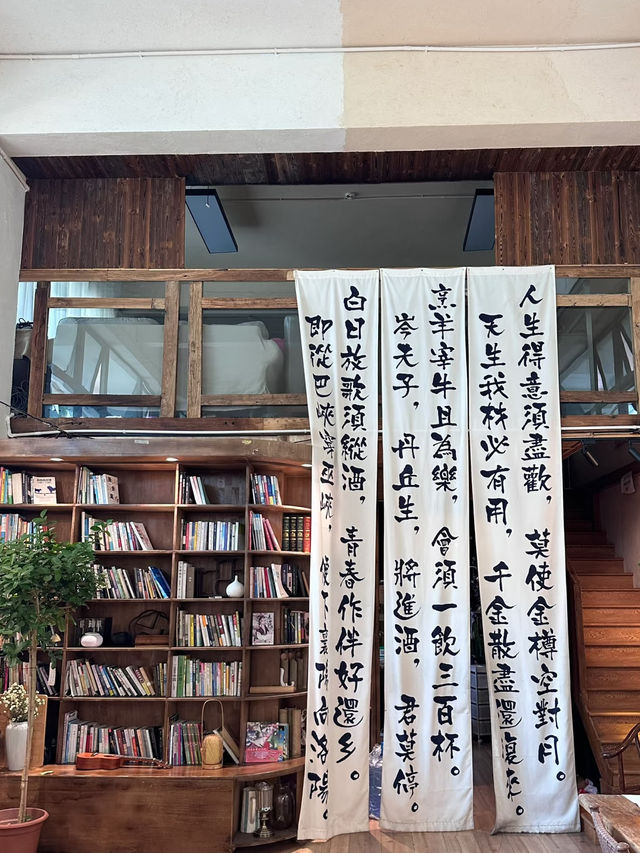 人生得意須盡歡，莫使金樽空對月。
天生我材必有用，千金散盡還復來。
烹羊宰牛且為樂，會須一飲三百杯。
岑夫子，丹丘生，將進酒，君莫停。
白日放歌須縱酒，青春作伴好還乡。
即從巴峽穿巫峽，便下襄陽向洛陽。